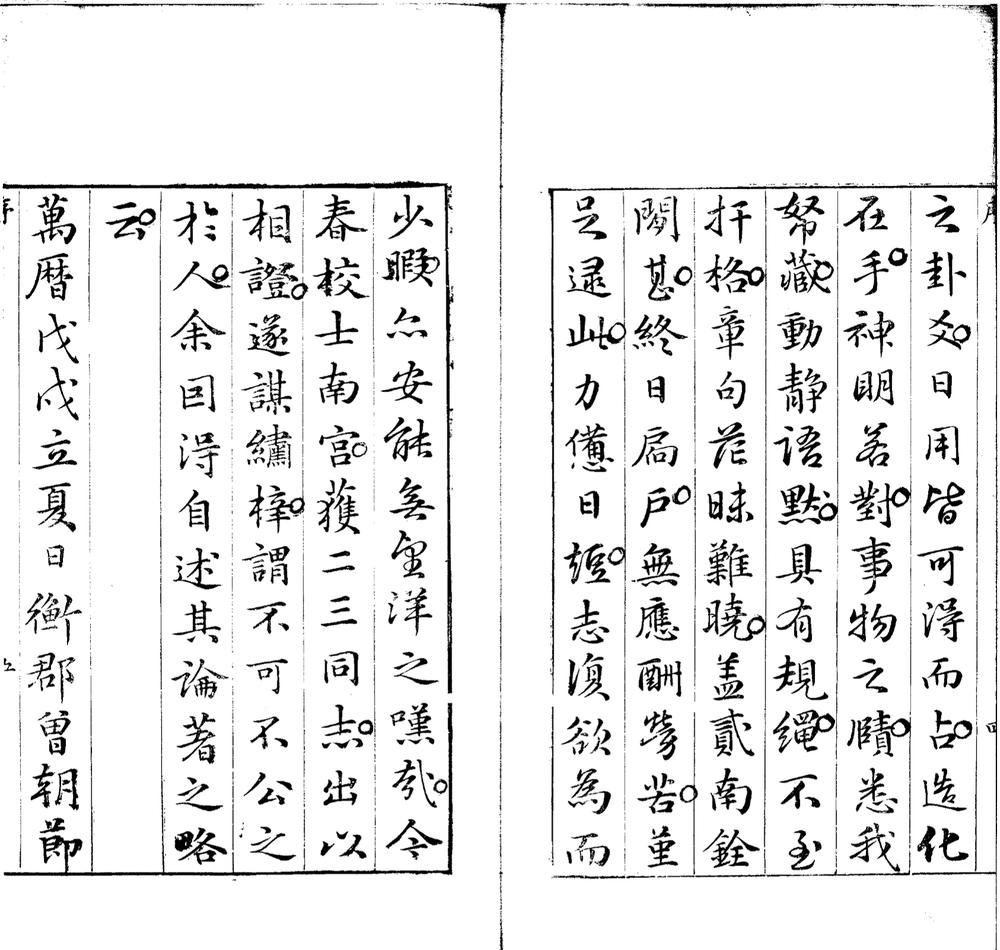 之卦爻日用皆可得而占造化
在手神明若對事物之賾悉我
帑藏動靜語默具有規繩不至
扞格章句茫昧難曉蓋貳南銓
闃甚終日扃戶無應酬勞苦堇
足逮此力憊日短志復欲為而
少暇亦安能無望洋之嘆哉今
春校士南宮獲二三同志出以
相證遂謀繡梓謂不可不公之
於人余因得自述其論著之略
云
萬曆戊戌立夏日衡郡曾朝節